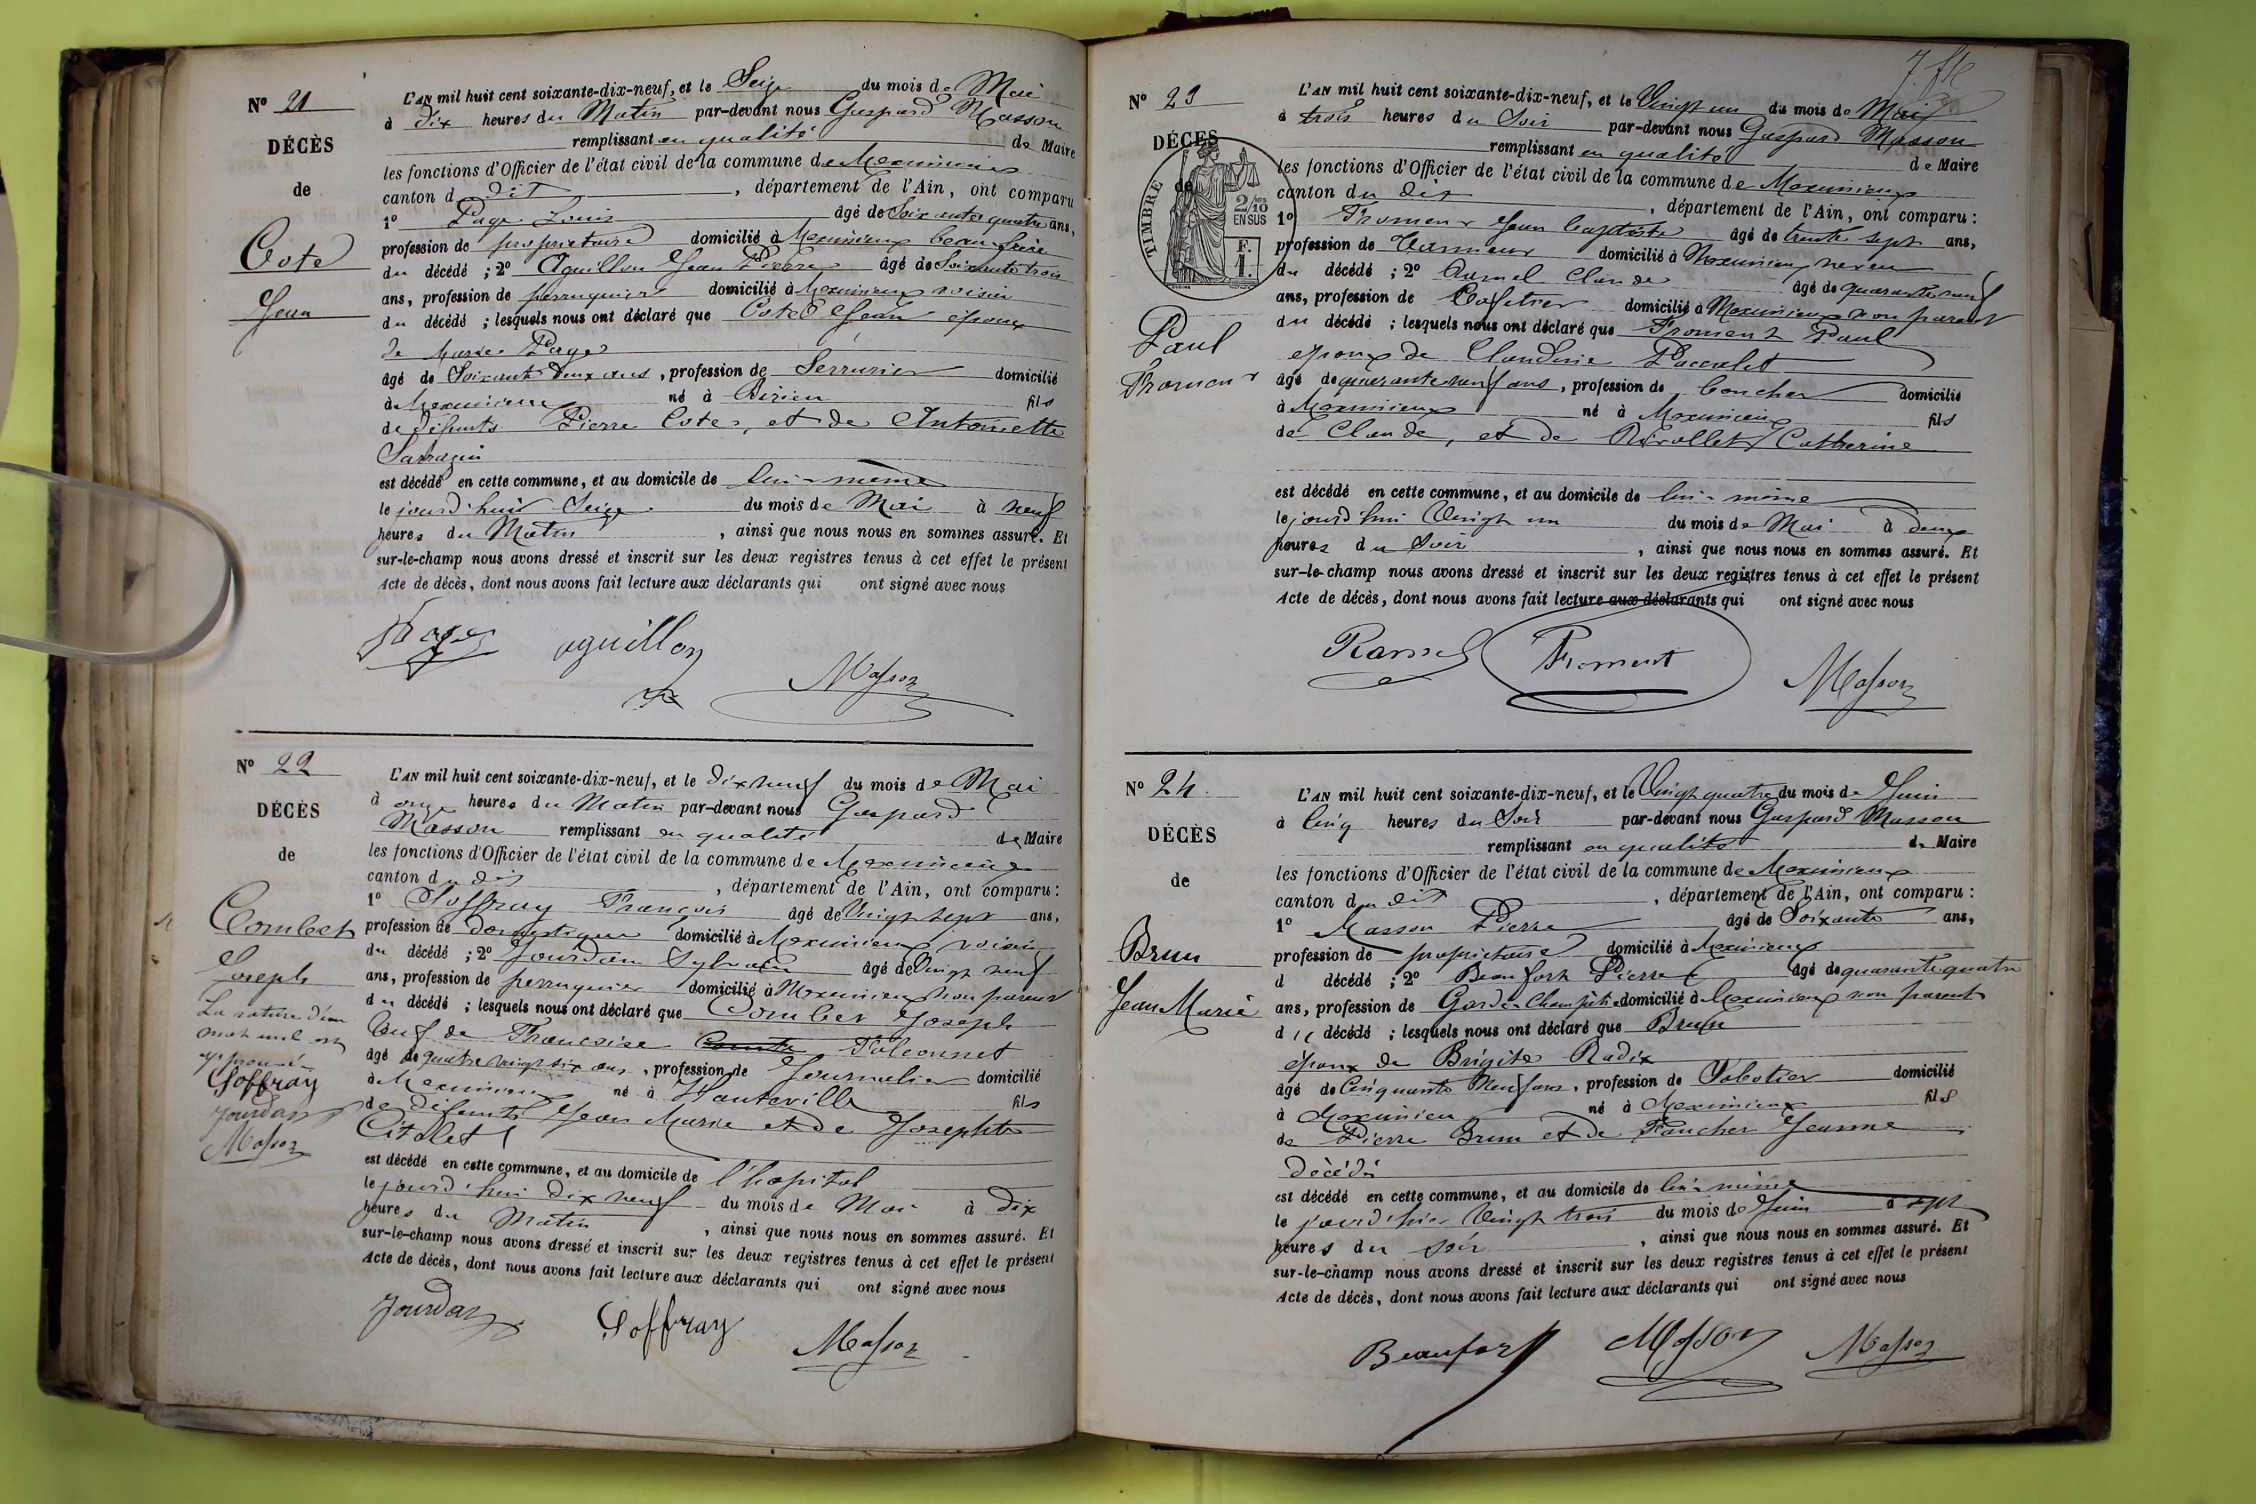 N° 21
DÉCÈS
de
Cote
Jean
L'AN mil huit cent soixante-dix-neuf, et le Seize du mois de Mai
à dix heures du Matin par-devant nous Gaspard Masson
remplissant en qualité de Maire
les fonctions d'Officier de l'état civil de la commune de Meximieux
canton du dit, département de l'Ain, ont comparu
1° Page Louis âgé de Soixante quatre ans,
profession de propriétaire domicilié à Meximieux beau frère
du décédé ; 2° Aguillon Jean Pierre âgé de Soixante trois
ans, profession de perruquier domicilié à Meximieux voisin
du décédé ; lesquels nous ont déclaré que Cote Jean époux
de Marie Page
âgé de Soixante deux ans, profession de Serrurier domicilié
à Meximieux né à Birieu fils
de défunts Pierre Cote, et de Antoinette
Sarrazin
est décédé en cette commune, et au domicile de lui-même
le jourd'hui Seize du mois de Mai à neuf
heures du Matin, ainsi que nous nous en sommes assuré. Et
sur-le-champ nous avons dressé et inscrit sur les deux registres tenus à cet effet le présent
Acte de décès, dont nous avons fait lecture aux déclarants qui ont signé avec nous
Page aguillon Masson
N° 22
DÉCÈS
de
Combet
Joseph
La rature d'un
mot nul est
approuvé
Soffray
Jourdan
Masson
L'AN mil huit cent soixante-dix-neuf, et le dix neuf du mois de Mai
à onze heures du Matin par-devant nous Gaspard
Masson remplissant en qualité de Maire
les fonctions d'Officier de l'état civil de la commune de Meximieux
canton du dit, département de l'Ain, ont comparu :
1° Soffray François âgé de Vingt sept ans,
profession de domestique domicilié à Meximieux voisin
du décédé ; 2° Jourdan Sylvain âgé de Vingt neuf
ans, profession de perruquier domicilié à Meximieux non parent
du décédé ; lesquels nous ont déclaré que Combet Joseph
Veuf de Françoise Falconnet
âgé de quatre vingt six ans, profession de Journalier domicilié
à Meximieux né à Hauteville fils
de défunts Jean Marie et de Josephte
Citalet
est décédé en cette commune, et au domicile de l'hopital
le jourd'hui dix neuf du mois de Mai à dix
heures du Matin, ainsi que nous nous en sommes assuré. Et
sur-le-champ nous avons dressé et inscrit sur les deux registres tenus à cet effet le présent
Acte de décès, dont nous avons fait lecture aux déclarants qui ont signé avec nous
Jourdan Soffray Masson
N° 23
DÉCÈS
de
TIMBRE
2/10
EN SUS
F.
1.
Paul
Froment
L'AN mil huit cent soixante-dix-neuf, et le Vingt un du mois de Mai
à trois heures du Soir par-devant nous Gaspard Masson
remplissant en qualité de Maire
les fonctions d'Officier de l'état civil de la commune de Meximieux
canton du dit, département de l'Ain, ont comparu :
1° Froment Jean baptiste âgé de trente sept ans,
profession de Tanneur domicilié à Meximieux neveu
du décédé ; 2° Ramel Claude âgé de quarante neuf
ans, profession de Cafetier domicilié à Meximieux non parent
du décédé ; lesquels nous ont déclaré que Froment Paul
époux de Claudine Paccalet
âgé de quarante neuf ans, profession de boucher domicilié
à Meximieux né à Meximieux fils
de Claude, et de Rivollet Catherine
est décédé en cette commune, et au domicile de lui-même
le jourd'hui Vingt un du mois de Mai à deux
heures du Soir, ainsi que nous nous en sommes assuré. Et
sur-le-champ nous avons dressé et inscrit sur les deux registres tenus à cet effet le présent
Acte de décès, dont nous avons fait lecture aux déclarants qui ont signé avec nous
Ramel Froment Masson
N° 24.
DÉCÈS
de
Brun
Jean Marie
L'AN mil huit cent soixante-dix-neuf, et le Vingt quatre du mois de Juin
à Cinq heures du Soir par-devant nous Gaspard Masson
remplissant en qualité de Maire
les fonctions d'Officier de l'état civil de la commune de Meximieux
canton du dit, département de l'Ain, ont comparu :
1° Masson Pierre âgé de Soixante ans,
profession de propriétaire domicilié à Meximieux
d décédé ; 2° Beaufort Pierre âgé de quarante quatre
ans, profession de Garde Champêtre domicilié à Meximieux non parent
du décédé ; lesquels nous ont déclaré que Brun
époux de Brigite Radix
âgé de Cinquante Neuf ans, profession de Sabotier domicilié
à Meximieux né à Meximieux fils
de Pierre Brun et de Faucher Jeanne
décédé
est décédé en cette commune, et au domicile de lui-même
le jourd'hier Vingt trois du mois de Juin à sept
heures du soir, ainsi que nous nous en sommes assuré. Et
sur-le-champ nous avons dressé et inscrit sur les deux registres tenus à cet effet le présent
Acte de décès, dont nous avons fait lecture aux déclarants qui ont signé avec nous
Beaufort Masson Masson